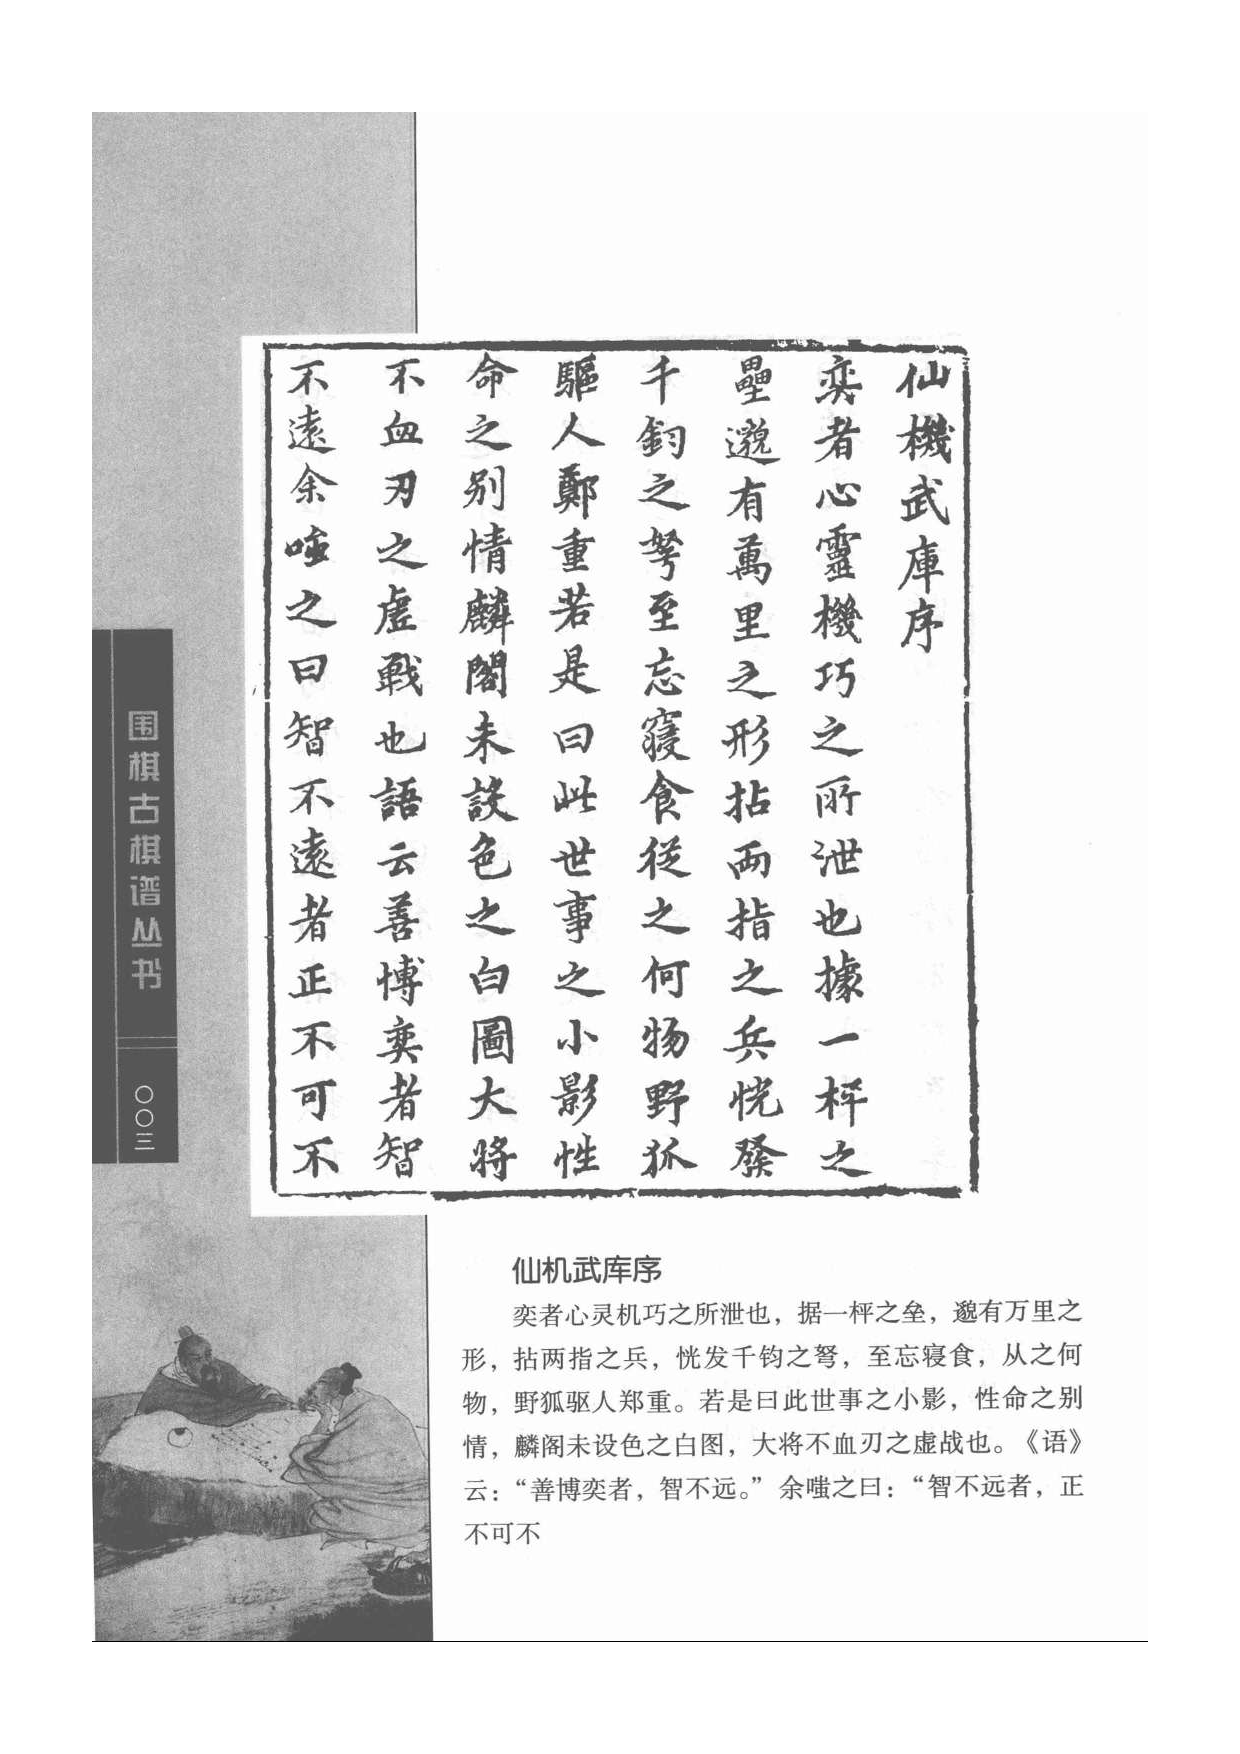 仙機武庫序
奕者心靈機巧之所泄也據一枰之
壘邈有萬里之形拈兩指之兵恍發
千鈞之弩至忘寢食從之何物野狐
驅人鄭重若是曰此世事之小影性
命之别情麟閣未設色之白圖大將
不血刃之虛戰也語云善博奕者智
不遠余嗤之曰智不遠者正不可不
围棋古棋谱丛书
〇〇三
仙机武库序
奕者心灵机巧之所泄也，据一枰之垒，邈有万里之
形，拈两指之兵，恍发千钧之弩，至忘寝食，从之何
物，野狐驱人郑重。若是曰此世事之小影，性命之别
情，麟阁未设色之白图，大将不血刃之虚战也。《语》
云：“善博奕者，智不远。”余嗤之曰：“智不远者，正
不可不